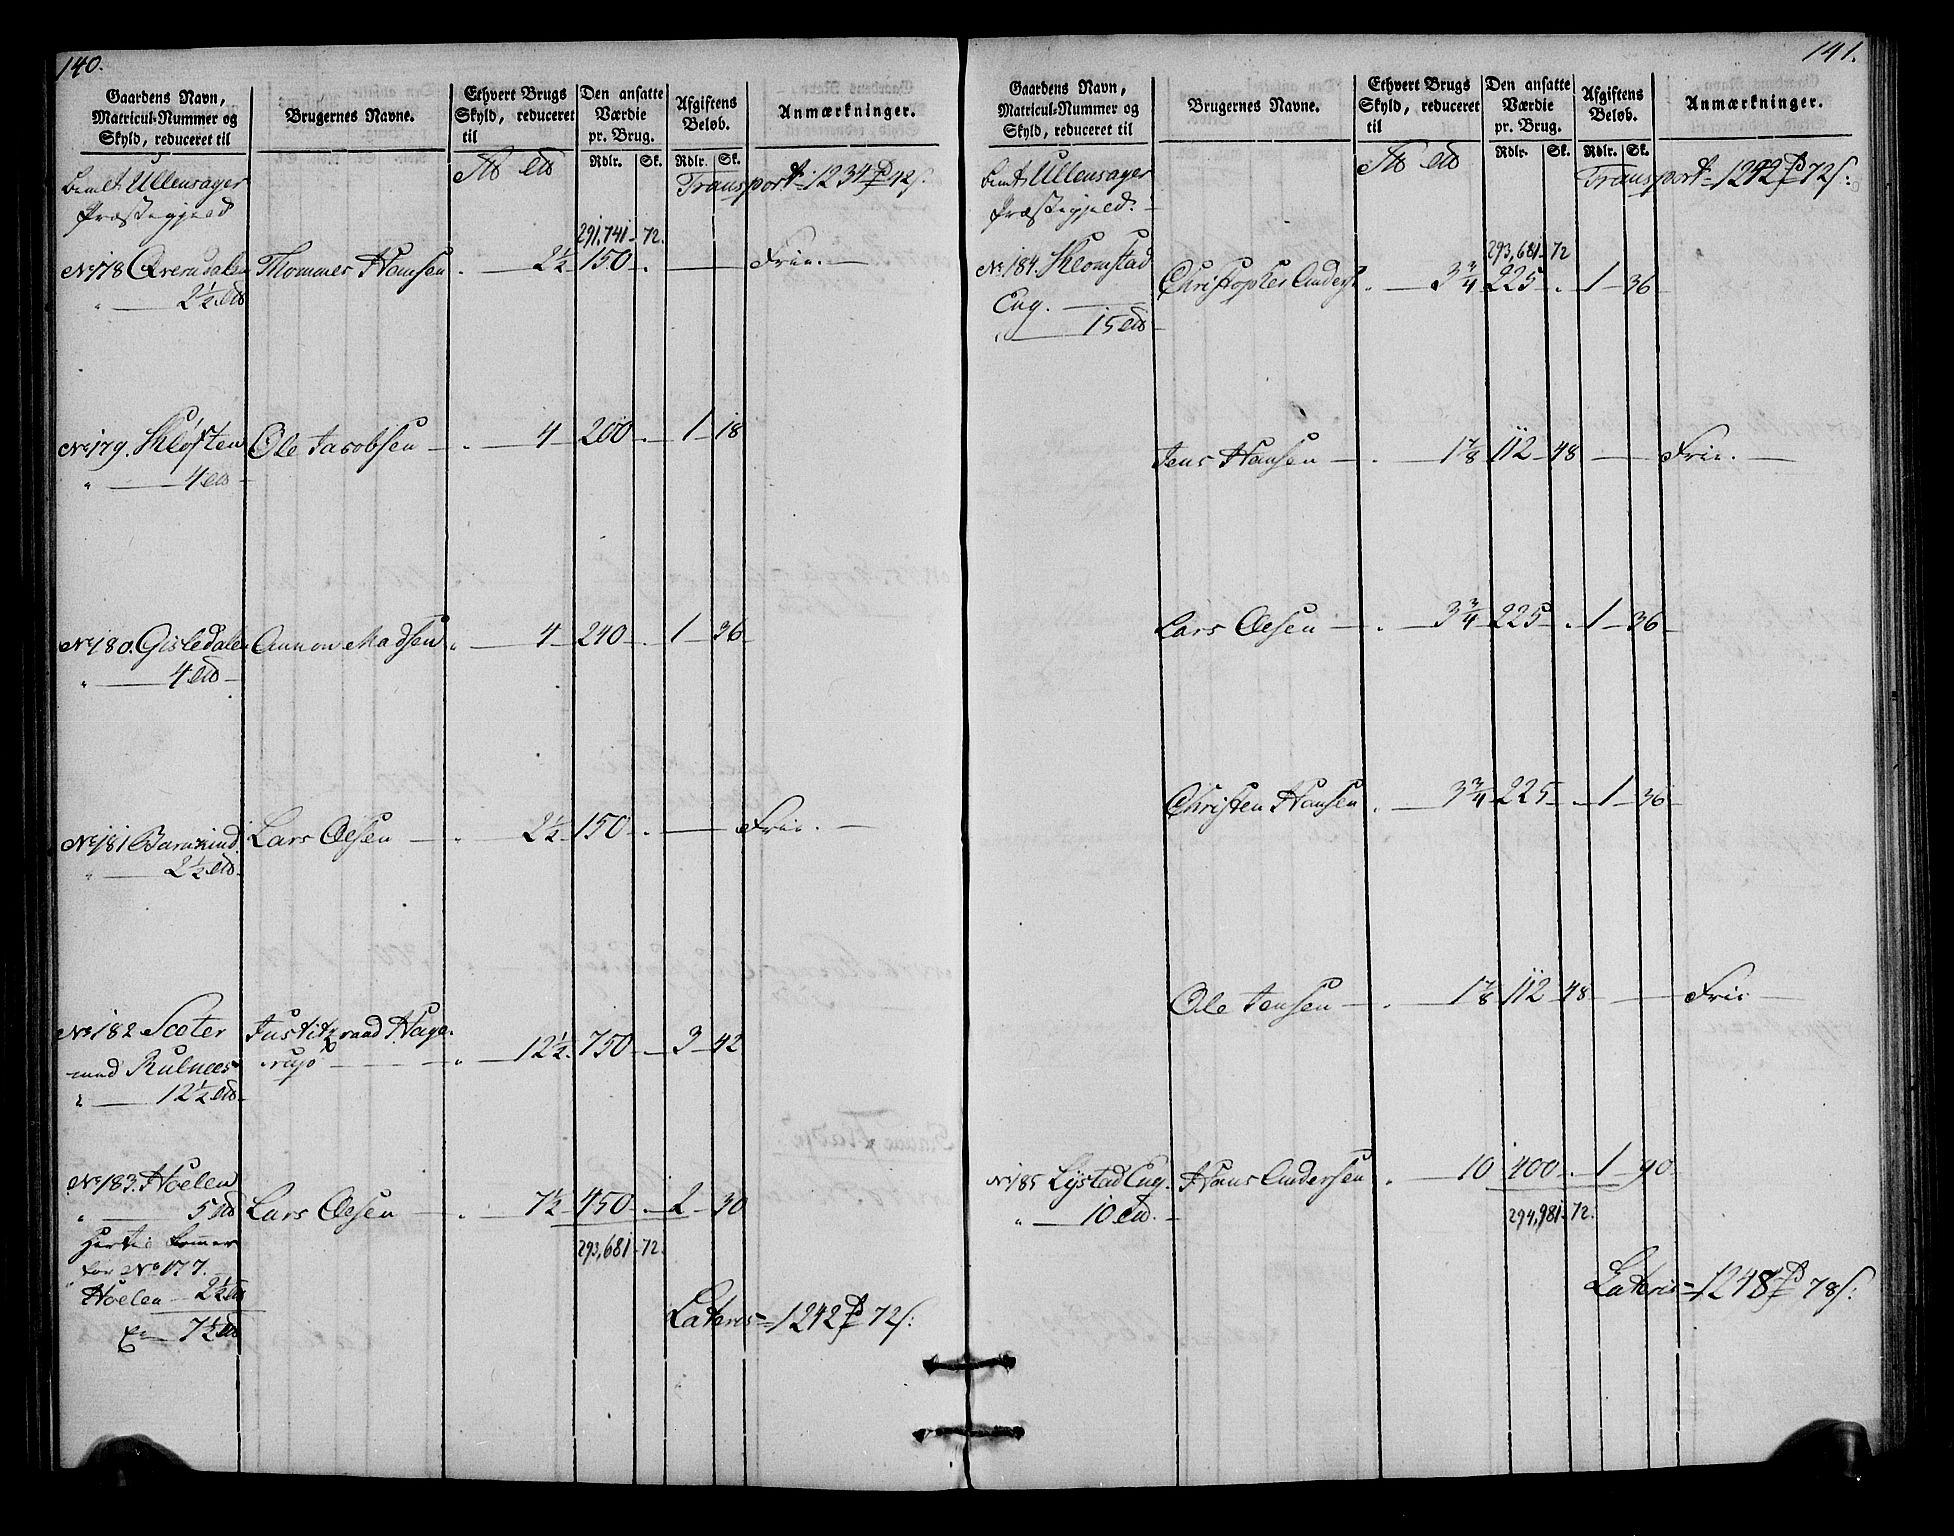 140.
Gaardens Navn, Matricul-Nummer og Skyld, reduceret til
Brugernes Navne.
Ethvert Brugs Skyld, reduceret til
Den ansatte Værdie pr. Brug.
Rdlr. Sk.
Afgiftens Beløb.
Rdlr. Sk.
Anmærkninger.
Ullensager
Præstegjeld
Transport 1234 42 s:
291,741 - 72.
No 178 Thommes Hansen 2½ 150 - Frie.
2½
No 179. Kløften Ole Jacobsen 4 200 - 1 - 18
4
No 180. Gisledalen Madsen 4 - 240 - 1 - 36
4
No 181 Lars Oesen 2½ 150 - Frie.
2½
No 182 Scoter Justitzraad Hage-
med rup 12½ 750 - 3 - 42
12½
No 183. Hoelen
5 Lars Oesen 7½ 450 - 2 - 30
Hertil kommer 293,681 - 72.
for No 177.
Hoelen 2½
7½
Lateris = 1242 72 s:
141.
Gaardens Navn, Matricul-Nummer og Skyld, reduceret til
Brugernes Navne.
Ethvert Brugs Skyld, reduceret til
Den ansatte Værdie pr. Brug.
Rdlr. Sk.
Afgiftens Beløb.
Rdlr. Sk.
Anmærkninger.
Ullensager
Præstegjeld:
Transport 1242 72 s:
293,681 - 72
No 184. Klomstad Christopher Anders. 3¾ 225 - 1 - 36
Eng.
15
Jens Hansen 1⅞ 112 - 48 - Frie.
Lars Oesen 3¾ 225 - 1 - 36
Christen Hansen 3¾ 225 - 1 - 36
Ole Jensen 1⅞ 112 - 48 - Frie
No 185 Lystad Eng. Hans Andersen 10 400 - 1 - 90
10
294,981 - 72.
Lateris = 1248 78 s: